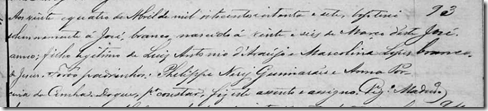 Aos vinte e quatro de Abril de mil oitocentos oitenta e sete, baptisei 93
solemnemente a José, branco, nascido á vinte e seis de Março d'este José
anno; filho legitimo de Luiz Antonio d'Araujo e Marcolina Lopes branco
Padrinhos: Philippe Nery Guimarães e Anna
da Cunha Roque, p.ª constar, fiz este assento e assigno.